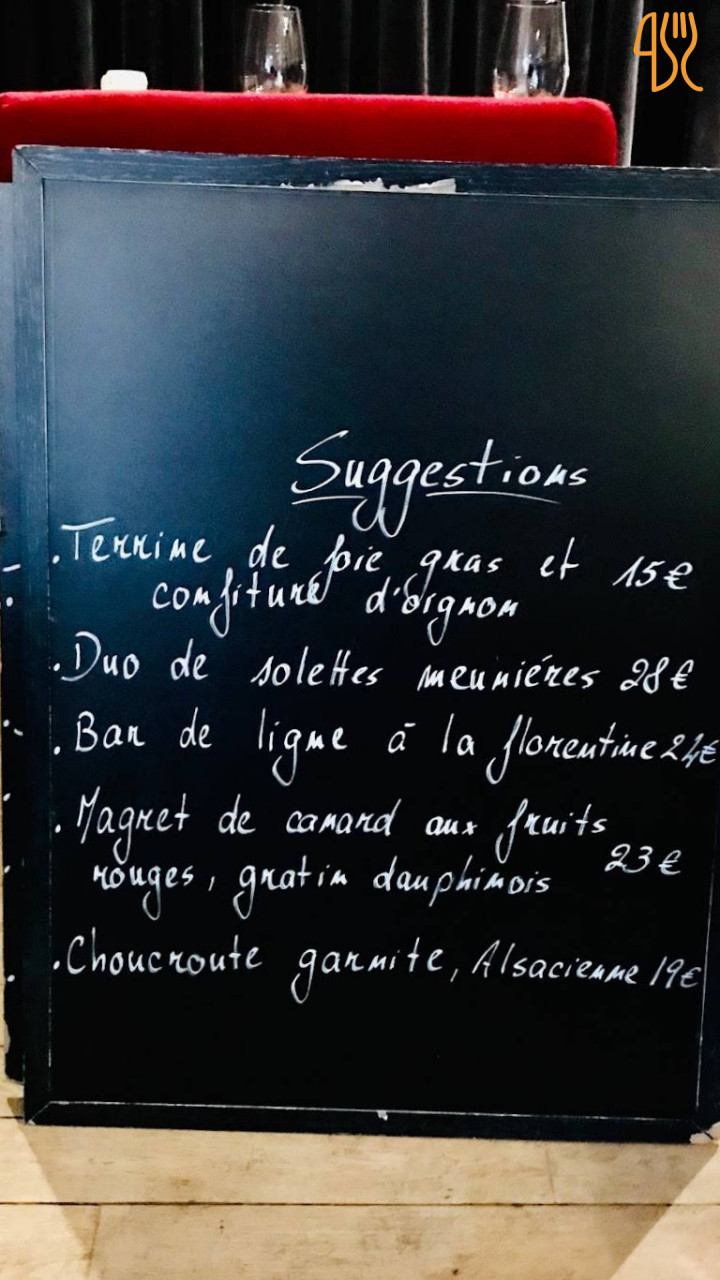 Suggestions
.Terrine de foie gras et 15€
confiture d'oignon
.Duo de solettes meuniéres 28€
.Bar de ligne à la florentine 24€
.Magret de canard aux fruits
rouges, gratin dauphinois 23€
.Choucroute garnite, Alsacienne 19€